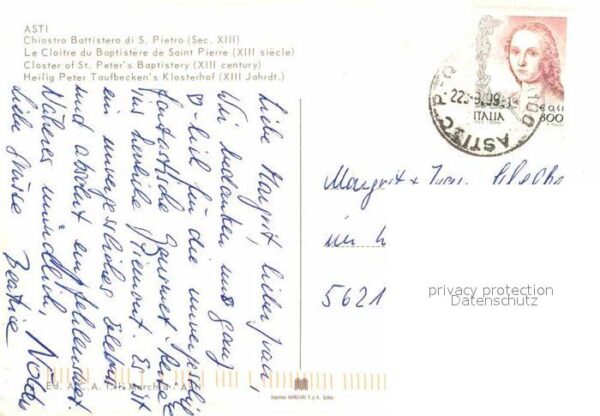 ASTI
Chiostro Battistero di S. Pietro (Sec. XIII)
Le Cloitre du Baptistère de Saint Pierre (XIII siècle)
Closter of St. Peter's Baptistery (XIII century)
Heilig Peter Taufbecken's Klosterhof (XIII Jahrdt.)
Liebe Margrit, lieber
Wir bedanken uns ganz
♡-lich für die
fantastische Gourmet-Reise
ins Piemont. Es ist
ein unvergessliches Erlebnis
und absolut empfehlenswert.
Näheres mündlich,
Liebe Grüsse Beatrice
Margrit +
5621
ASTI
ITALIA
€ 0,41
800
privacy protection
Datenschutz